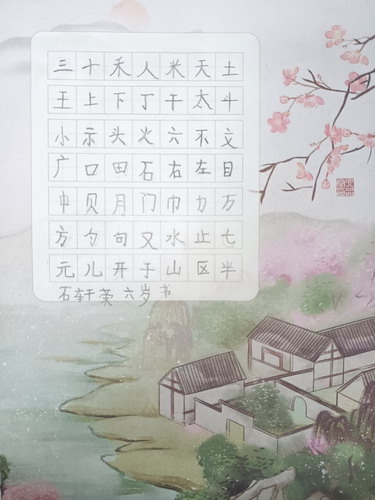 三十禾人米天土
王上下丁干太斗
小示头火六不文
广口田石右左目
申贝月门巾力万
方勺句又水止七
元儿开于山区半
石轩荣 六岁书